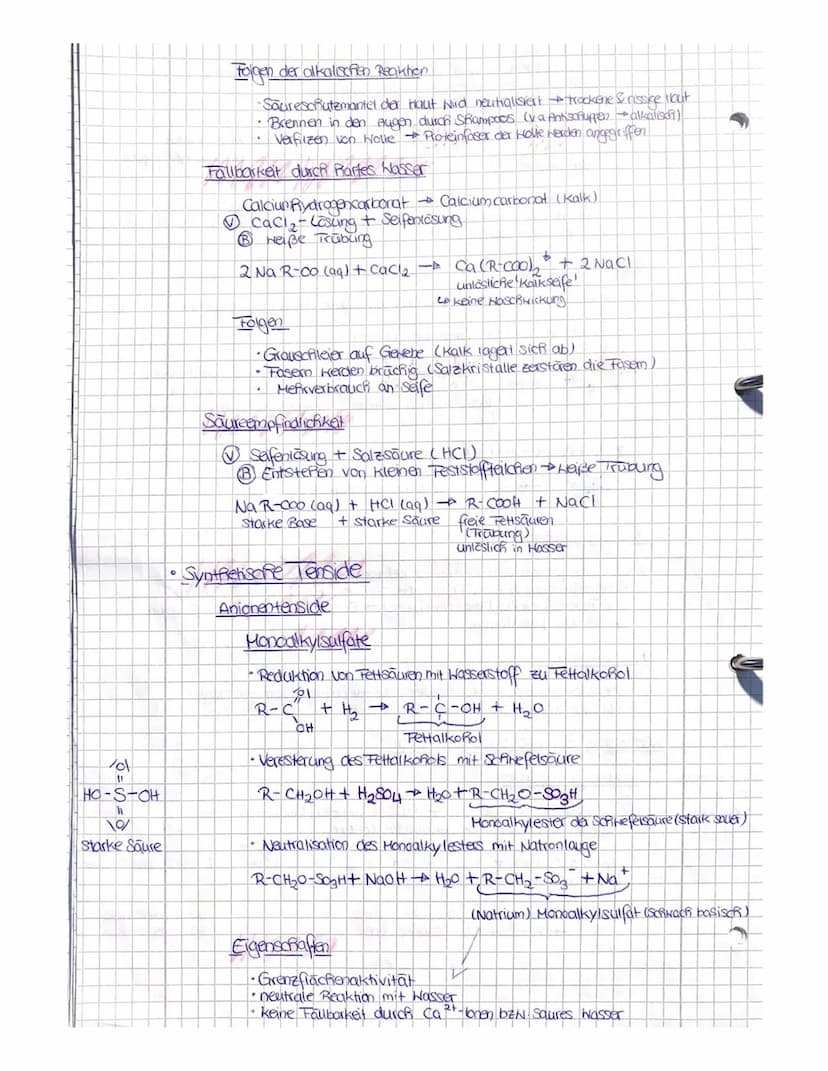 Folgen der alkalischen Reaktion
· Säureschutzmantel der Haut wird neutralisiert → trockene & rissige Haut
· Brennen in den Augen durch Shampoos (v.a Antischuppen → alkalisch)
· Verfilzen von Wolle → Proteinfaser der Wolle werden angegriffen
Fällbarkeit durch hartes Wasser
Calciumhydrogencarbonat → Calciumcarbonat (Kalk)
Ⓥ CaCl₂-Lösung + Seifenlösung
Ⓑ weiße Trübung
2 Na R-OO (aq) + CaCl₂ → Ca(R-COO)₂↓ + 2 NaCl
unlösliche 'Kalkseife'
↳ keine Waschwirkung
Folgen
· Grauschleier auf Gewebe (Kalk lagert sich ab)
· Fasern werden brüchig (Salzkristalle zerstören die Fasern)
· Mehrverbrauch an Seife
Säureempfindlichkeit
Ⓥ Seifenlösung + Salzsäure (HCl)
Ⓑ Entstehen von kleinen Feststoffteilchen → weiße Trübung
Na R-COO (aq) + HCl (aq) → R-COOH + NaCl
starke Base + starke Säure freie Fettsäuren
(Trübung)
unlöslich in Wasser
• Synthetische Tenside
Anionentenside
Monoalkylsulfate
· Reduktion von Fettsäuren mit Wasserstoff zu Fettalkohol
O
R-C + H₂ → R-C-OH + H₂O
OH
Fettalkohol
· Veresterung des Fettalkohols mit Schwefelsäure
O
HO-S-OH
O
starke Säure
R-CH₂OH + H₂SO₄ → H₂O + R-CH₂O-SO₃H
Monoalkylester der Schwefelsäure (stark sauer)
· Neutralisation des Monoalkylesters mit Natronlauge
R-CH₂O-SO₃H + NaOH → H₂O + R-CH₂-SO₃⁻ + Na⁺
(Natrium) Monoalkylsulfat (schwach basisch)
Eigenschaften
· Grenzflächenaktivität
· neutrale Reaktion mit Wasser
· keine Fällbarkeit durch Ca²⁺-Ionen bzw. saures Wasser